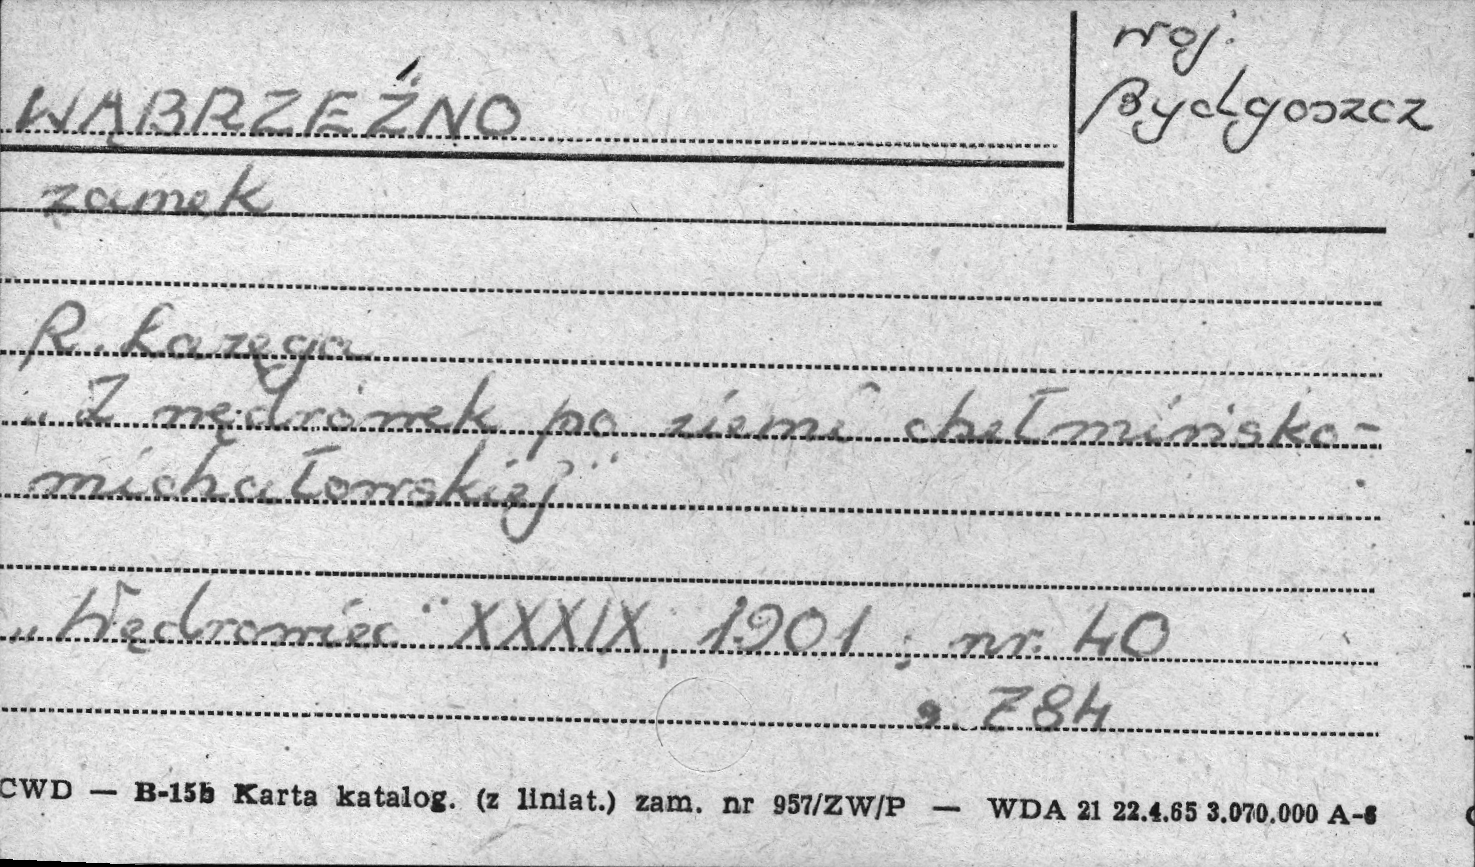 woj.
Bydgoszcz
WĄBRZEŹNO
zamek
R. Łazęga
„Z wędrówek po ziemi chełmińsko-
michałowskiej"
„Wędrowiec" XXXIX, 1901, nr. 40
s. 784
CWD — B-15b Karta katalog. (z liniat.) zam. nr 957/ZW/P — WDA 21 22.4.65 3.070.000 A-6